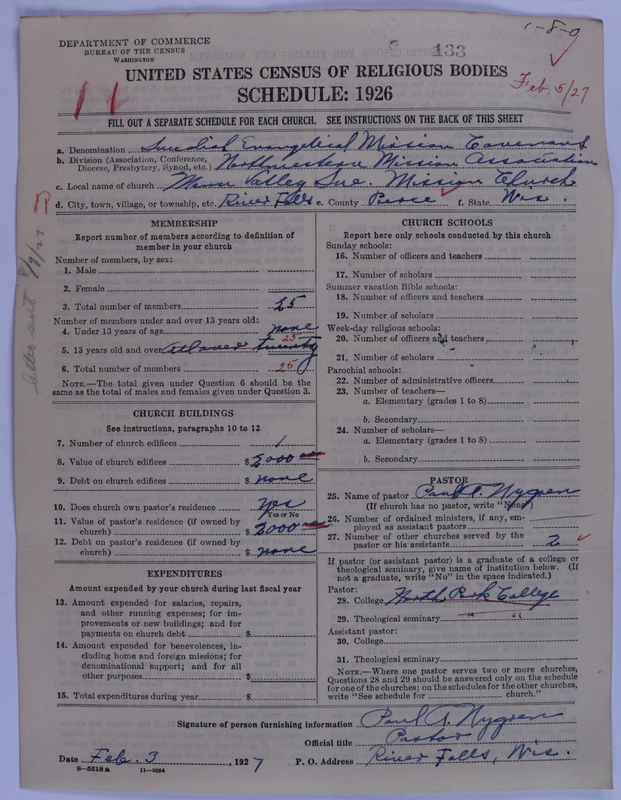 1-8-0
133
DEPARTMENT OF COMMERCE
BUREAU OF THE CENSUS
WASHINGTON
UNITED STATES CENSUS OF RELIGIOUS BODIES
SCHEDULE: 1926
Feb. 5/27
11
FILL OUT A SEPARATE SCHEDULE FOR EACH CHURCH. SEE INSTRUCTIONS ON THE BACK OF THIS SHEET
a. Denomination Swedish Evangelical Mission Covenant
b. Division (Association, Conference, Diocese, Presbytery, Synod, etc.) Northwestern Mission Association
c. Local name of church Mann Valley Swe. Mission Church
d. City, town, village, or township, etc. River Falls e. County Pierce f. State Wis.
letter sent 8/9/27
MEMBERSHIP
Report number of members according to definition of
member in your church
Number of members, by sex:
1. Male
2. Female
3. Total number of members 25
Number of members under and over 13 years old:
4. Under 13 years of age none
25
5. 13 years old and over all over twenty
6. Total number of members 25
NOTE.—The total given under Question 6 should be the
same as the total of males and females given under Question 3.
CHURCH BUILDINGS
See instructions, paragraphs 10 to 12
7. Number of church edifices 1
8. Value of church edifices $2000
9. Debt on church edifices $none
10. Does church own pastor's residence yes
Yes or No
11. Value of pastor's residence (if owned by
church) $2000
12. Debt on pastor's residence (if owned by
church) $none
EXPENDITURES
Amount expended by your church during last fiscal year
13. Amount expended for salaries, repairs,
and other running expenses; for im-
provements or new buildings; and for
payments on church debt $
14. Amount expended for benevolences, in-
cluding home and foreign missions; for
denominational support; and for all
other purposes $
15. Total expenditures during year $
CHURCH SCHOOLS
Report here only schools conducted by this church
Sunday schools:
16. Number of officers and teachers
17. Number of scholars
Summer vacation Bible schools:
18. Number of officers and teachers
19. Number of scholars
Week-day religious schools:
20. Number of officers and teachers
21. Number of scholars
Parochial schools:
22. Number of administrative officers
23. Number of teachers—
a. Elementary (grades 1 to 8)
b. Secondary
24. Number of scholars—
a. Elementary (grades 1 to 8)
b. Secondary
PASTOR
25. Name of pastor Paul T. Nygren
(If church has no pastor, write "None")
26. Number of ordained ministers, if any, em-
ployed as assistant pastors
27. Number of other churches served by the
pastor or his assistants 2
If pastor (or assistant pastor) is a graduate of a college or
theological seminary, give name of institution below. (If
not a graduate, write "No" in the space indicated.)
Pastor:
28. College North Park College
29. Theological seminary " "
Assistant pastor:
30. College
31. Theological seminary
NOTE.—Where one pastor serves two or more churches,
Questions 28 and 29 should be answered only on the schedule
for one of the churches; on the schedules for the other churches,
write "See schedule for church."
Signature of person furnishing information Paul T. Nygren
Official title Pastor
Date Feb. 3, 1927 P. O. Address River Falls, Wis.
8-5518a 11-9034